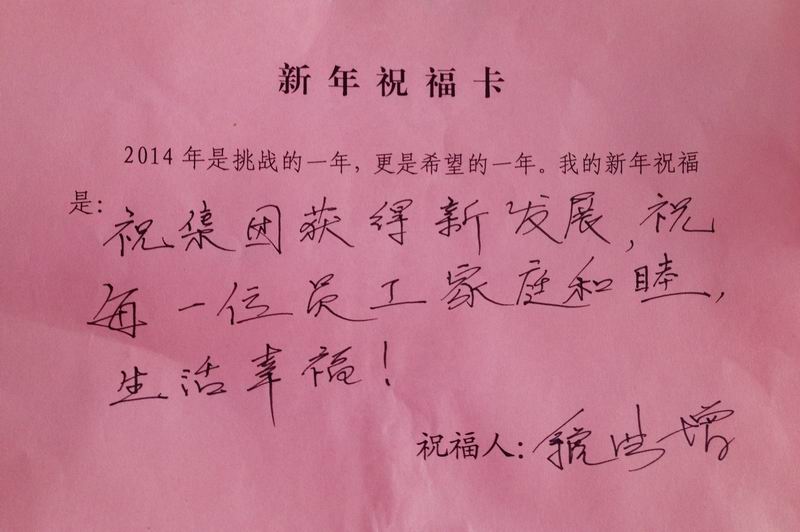 新年祝福卡
2014年是挑战的一年，更是希望的一年。我的新年祝福
是：祝集团获得新发展，祝
每一位员工家庭和睦，
生活幸福！
祝福人：